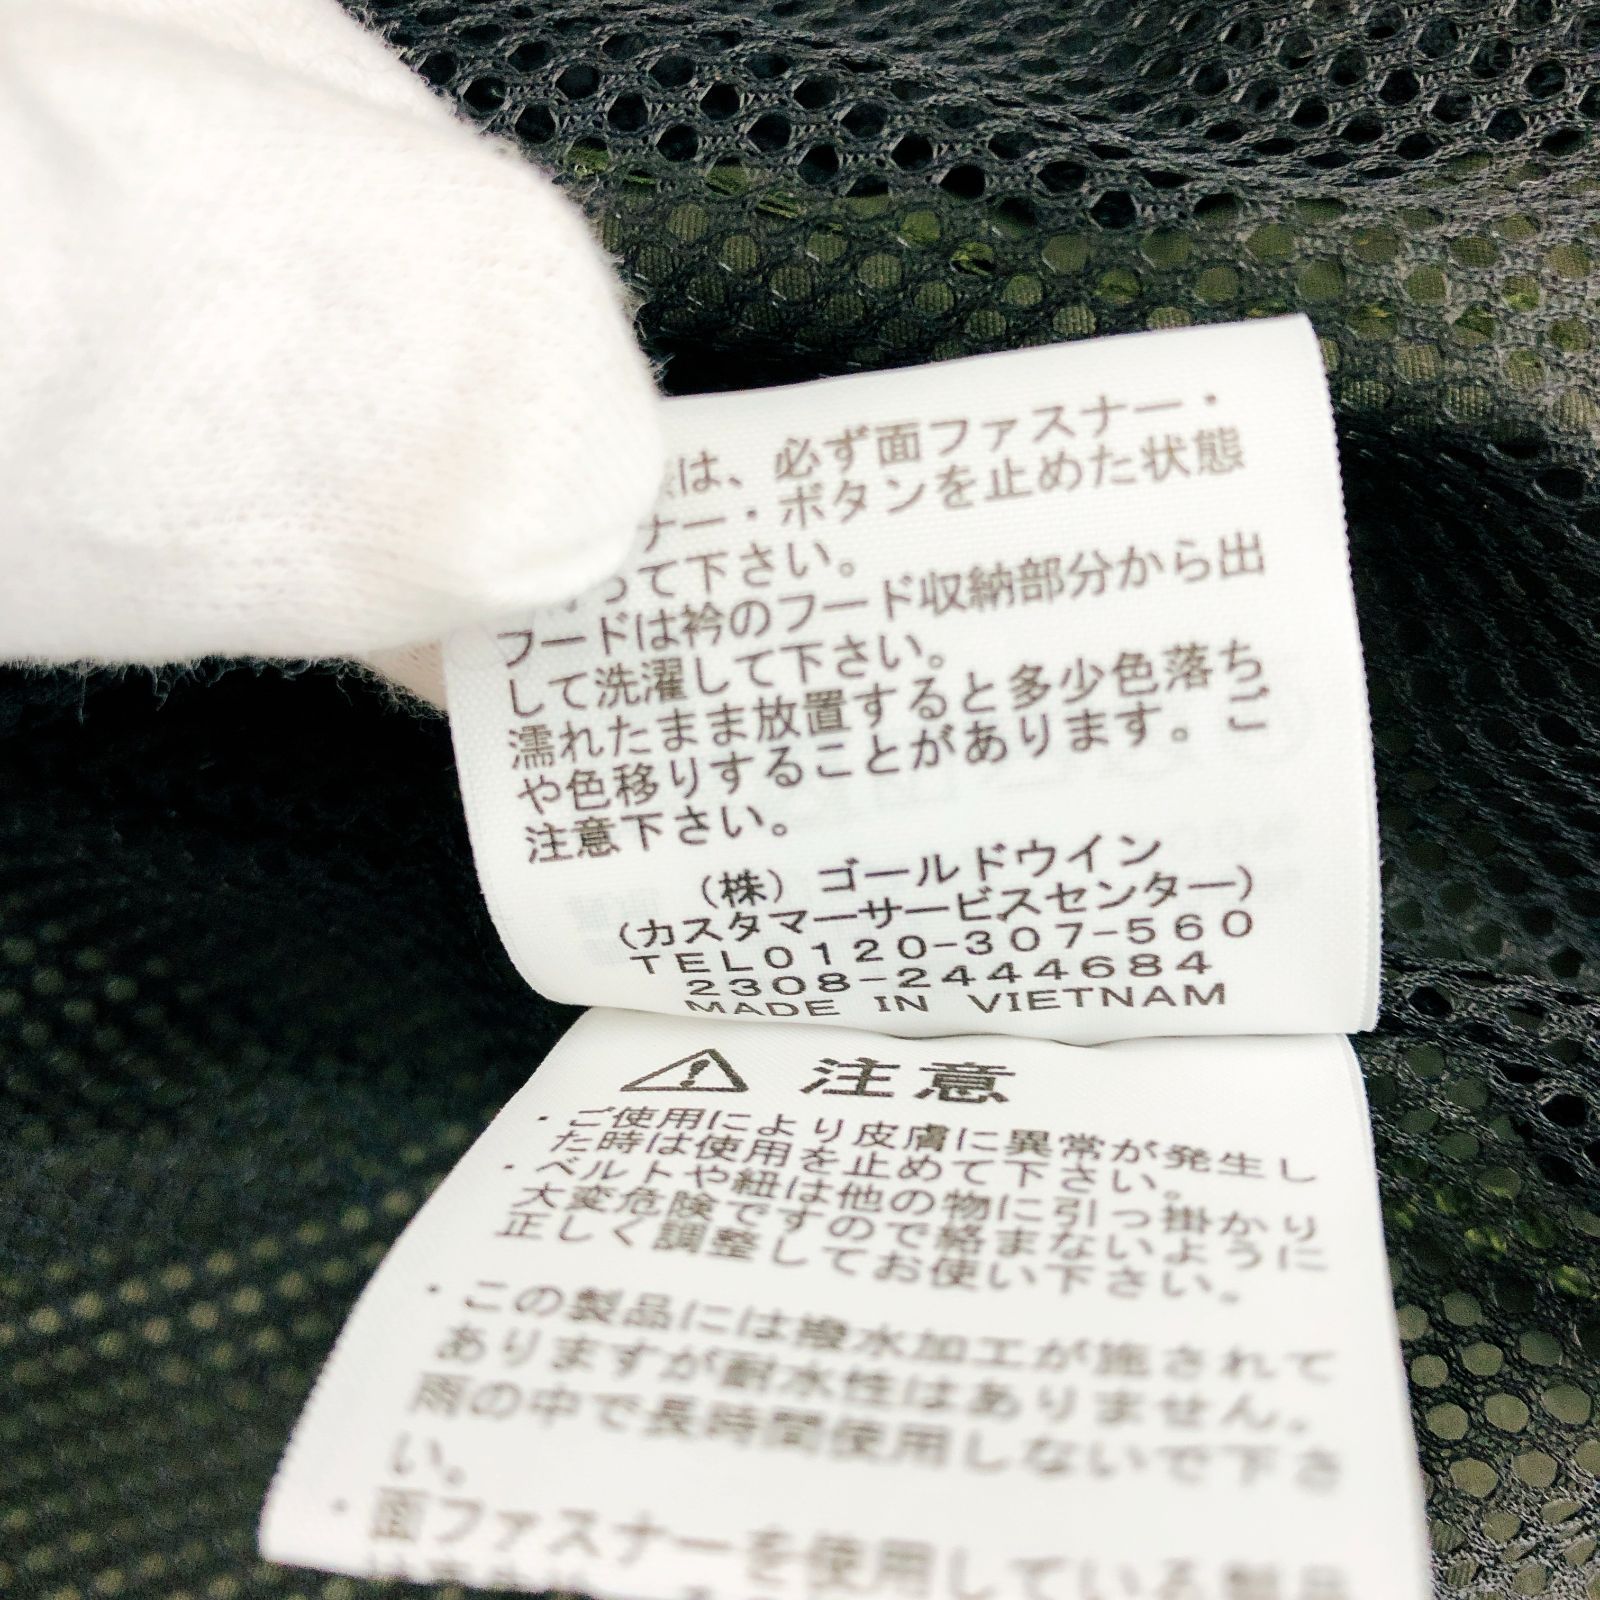 は、必ず面ファスナー・
ナー・ボタンを止めた状態
って下さい。
フードは衿のフード収納部分から出
して洗濯して下さい。
濡れたまま放置すると多少色落ち
や色移りすることがあります。ご
注意下さい。
(株) ゴールドウイン
(カスタマーサービスセンター)
TEL0120-307-560
2308-2444684
MADE IN VIETNAM
注意
・ご使用により皮膚に異常が発生し
た時は使用を止めて下さい。
・ベルトや紐は他の物に引っ掛かり
大変危険ですので絡まないように
正しく調整してお使い下さい。
・この製品には撥水加工が施されて
ありますが耐水性はありません。
雨の中で長時間使用しないで下さ
い。
・面ファスナーを使用している製品